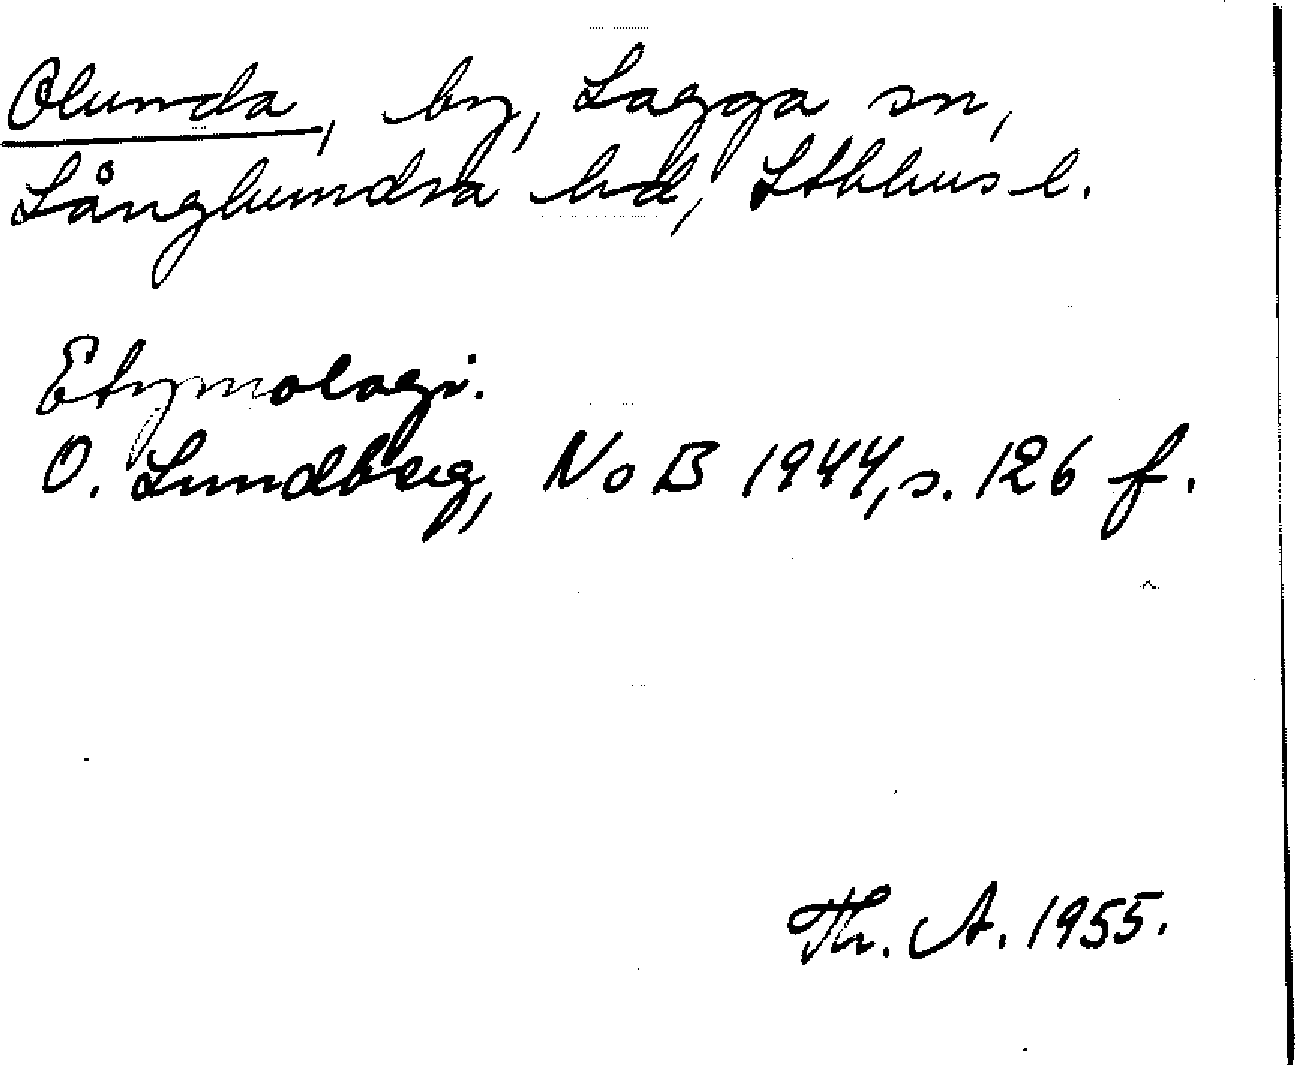 Olunda, by, Lagga sn,
Långhundra hd, Sthlms l.
Etymologi.
O. Lundberg, NoB 1944, s. 126 f.
Th. A. 1955.